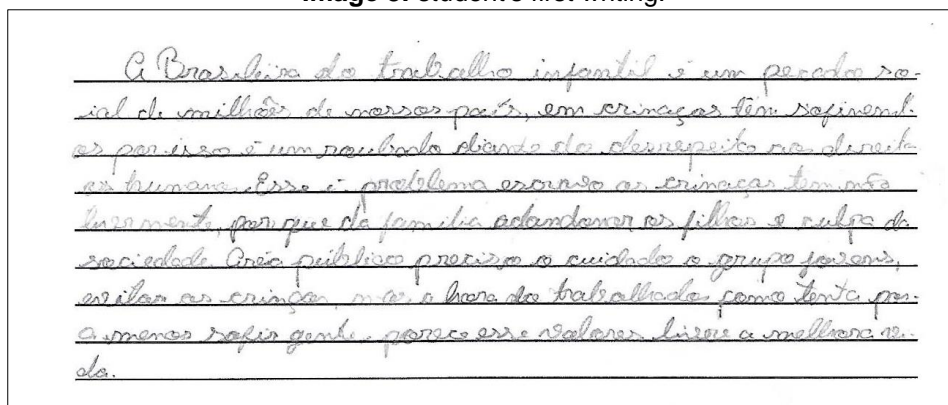 Image 3: Student's first writing.
A Brasileira do trabalho infantil é um pecado so-
ial de milhões de nossos país, em crinaças têm sofriment.
os por isso é um roubando diante do desrepeito aos direit
os humano. Esse é problema escravo as crinaças tem não
livremente, por que da família adandonar os filhos e culpa da
sociedade. Creio público preciso o cuidado o grupo jovens,
evitar as crinças, mas a hora do trabalhado, como tenta par-
a menos sofir gente. pareço esse valores livre a melhora vi-
da.